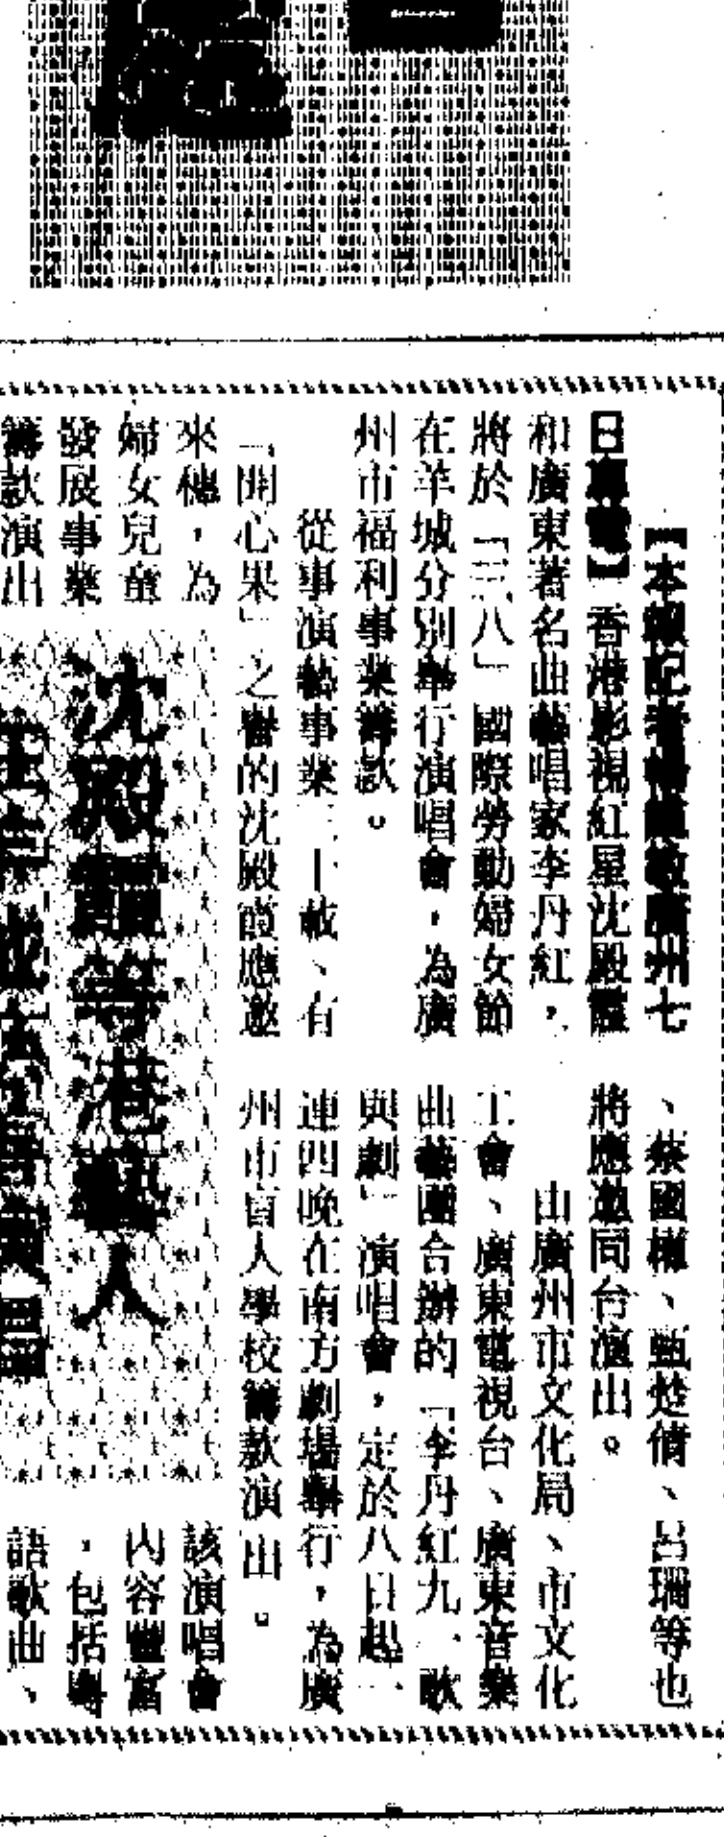 沈殿霞等港藝人
【本報記者敏廣州七
日專電】香港影視紅星沈殿霞
和廣東著名曲藝唱家李丹紅,
將於「三八」國際勞動婦女節
在羊城分別舉行演唱會,為廣
州市福利事業籌款。
從事演藝事業三十載、有
「開心果」之譽的沈殿霞應邀
來穗,為
婦女兒童
發展事業
籌款演出
、蔡國權、甄楚倩、呂珊等也
將應邀同台演出。
由廣州市文化局、市文化
工會、廣東電視台、廣東音樂
曲藝團合辦的「李丹紅九一歌
與劇」演唱會,定於八日起一
連四晚在南方劇場舉行,為廣
州市盲人學校籌款演出。
該演唱會
內容豐富
,包括粵
語歌曲、